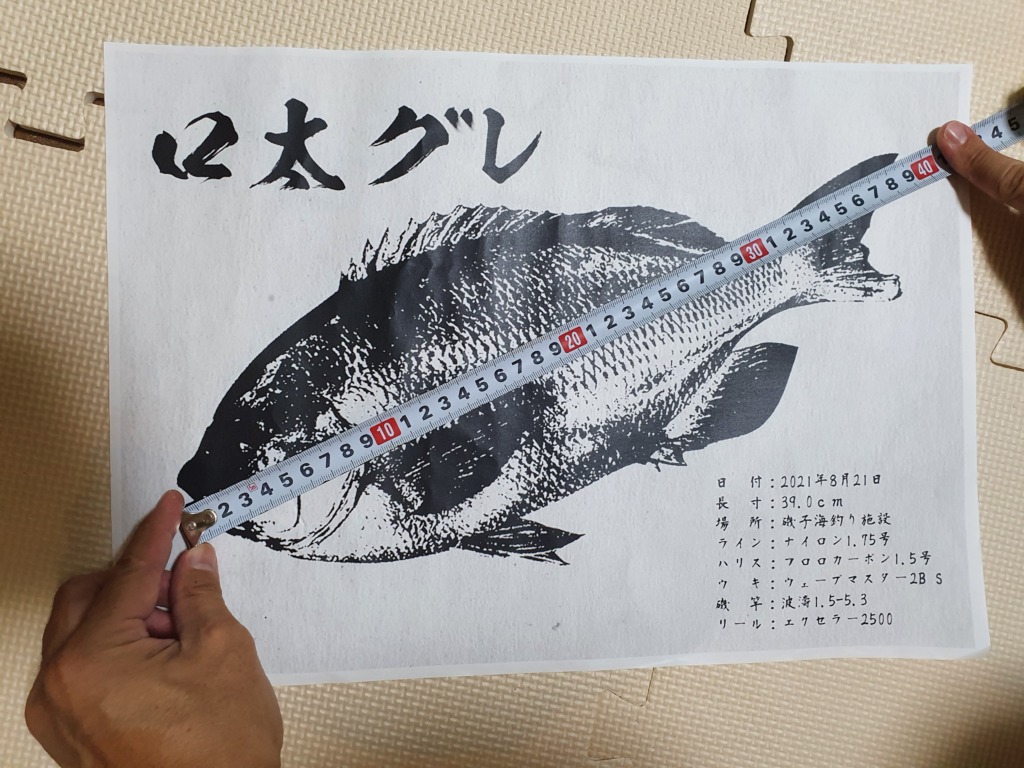 口太グレ
2 3 4 5 6 7 8 9 10 1 2 3 4 5 6 7 8 9 20 1 2 3 4 5 6 7 8 9 30 1 2 3 4 5 6 7 8 9 40 4 5
日 付：2021年8月21日
長 寸：39.0cm
場 所：磯子海釣り施設
ライン：ナイロン1.75号
ハリス：フロロカーボン1.5号
ウ キ：ウェーブマスター2B S
磯 竿：波濤1.5-5.3
リール：エクセラー2500